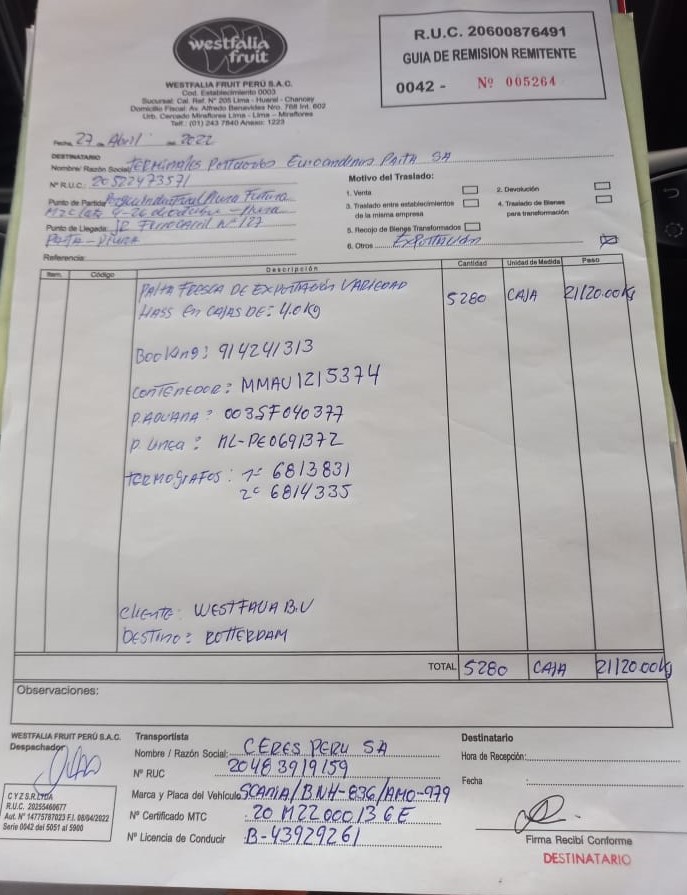 westfalia
fruit
WESTFALIA FRUIT PERÚ S.A.C.
Cod. Establecimiento 0003
Sucursal: Cal. Ref. N° 205 Lima - Huaral - Chancay
Domicilio Fiscal: Av. Alfredo Benavides Nro. 768 Int. 602
Urb. Cercado Miraflores Lima - Lima - Miraflores
Telf.: (01) 243 7840 Anexo: 1223
R.U.C. 20600876491
GUIA DE REMISION REMITENTE
0042 - Nº 005264
Fecha, 27 de Abril de 2022
DESTINATARIO
Nombre/ Razón Social: TERMINALES PORTUARIOS Euroandinos PAITA SA
N° R.U.C.: 20522473571
Punto de Partida:
Punto de Llegada: JR Ferrocarril N° 127
Paita - Piura
Referencia:
Motivo del Traslado:
1. Venta
2. Devolución
3. Traslado entre establecimientos
de la misma empresa
4. Traslado de Bienes
para transformación
5. Recojo de Bienes Transformados
6. Otros EXPORTACIÓN
Item. Código Descripción Cantidad Unidad de Medida Peso
PALTA FRESCA DE EXPORTACIÓN VARIEDAD 5280 CAJA 21120.00 Kg
HASS En CAJAS DE: 4.0 Kg
Booking: 914241313
CONTENEDOR: MMAU 1215374
P. ADUANA: 0035F040377
P. Linea: ML-PE0691372
TERMOGRAFOS: 1° 6813831
2° 6814335
Cliente: WESTFALIA B.V
DESTINO: ROTTERDAM
TOTAL 5280 CAJA 21120.00 Kg
Observaciones:
WESTFALIA FRUIT PERÚ S.A.C.
Despachador
C Y Z S.R.LTDA
R.U.C. 20255460677
Aut. N° 14775787023 F.I. 08/04/2022
Serie 0042 del 5051 al 5900
Transportista
Nombre / Razón Social: CERES PERU SA
N° RUC 20483919159
Marca y Placa del Vehículo: SCANIA / BNH-836 / AMO-979
N° Certificado MTC 20 M22000136E
N° Licencia de Conducir B-43929261
Destinatario
Hora de Recepción:
Fecha
Firma Recibí Conforme
DESTINATARIO